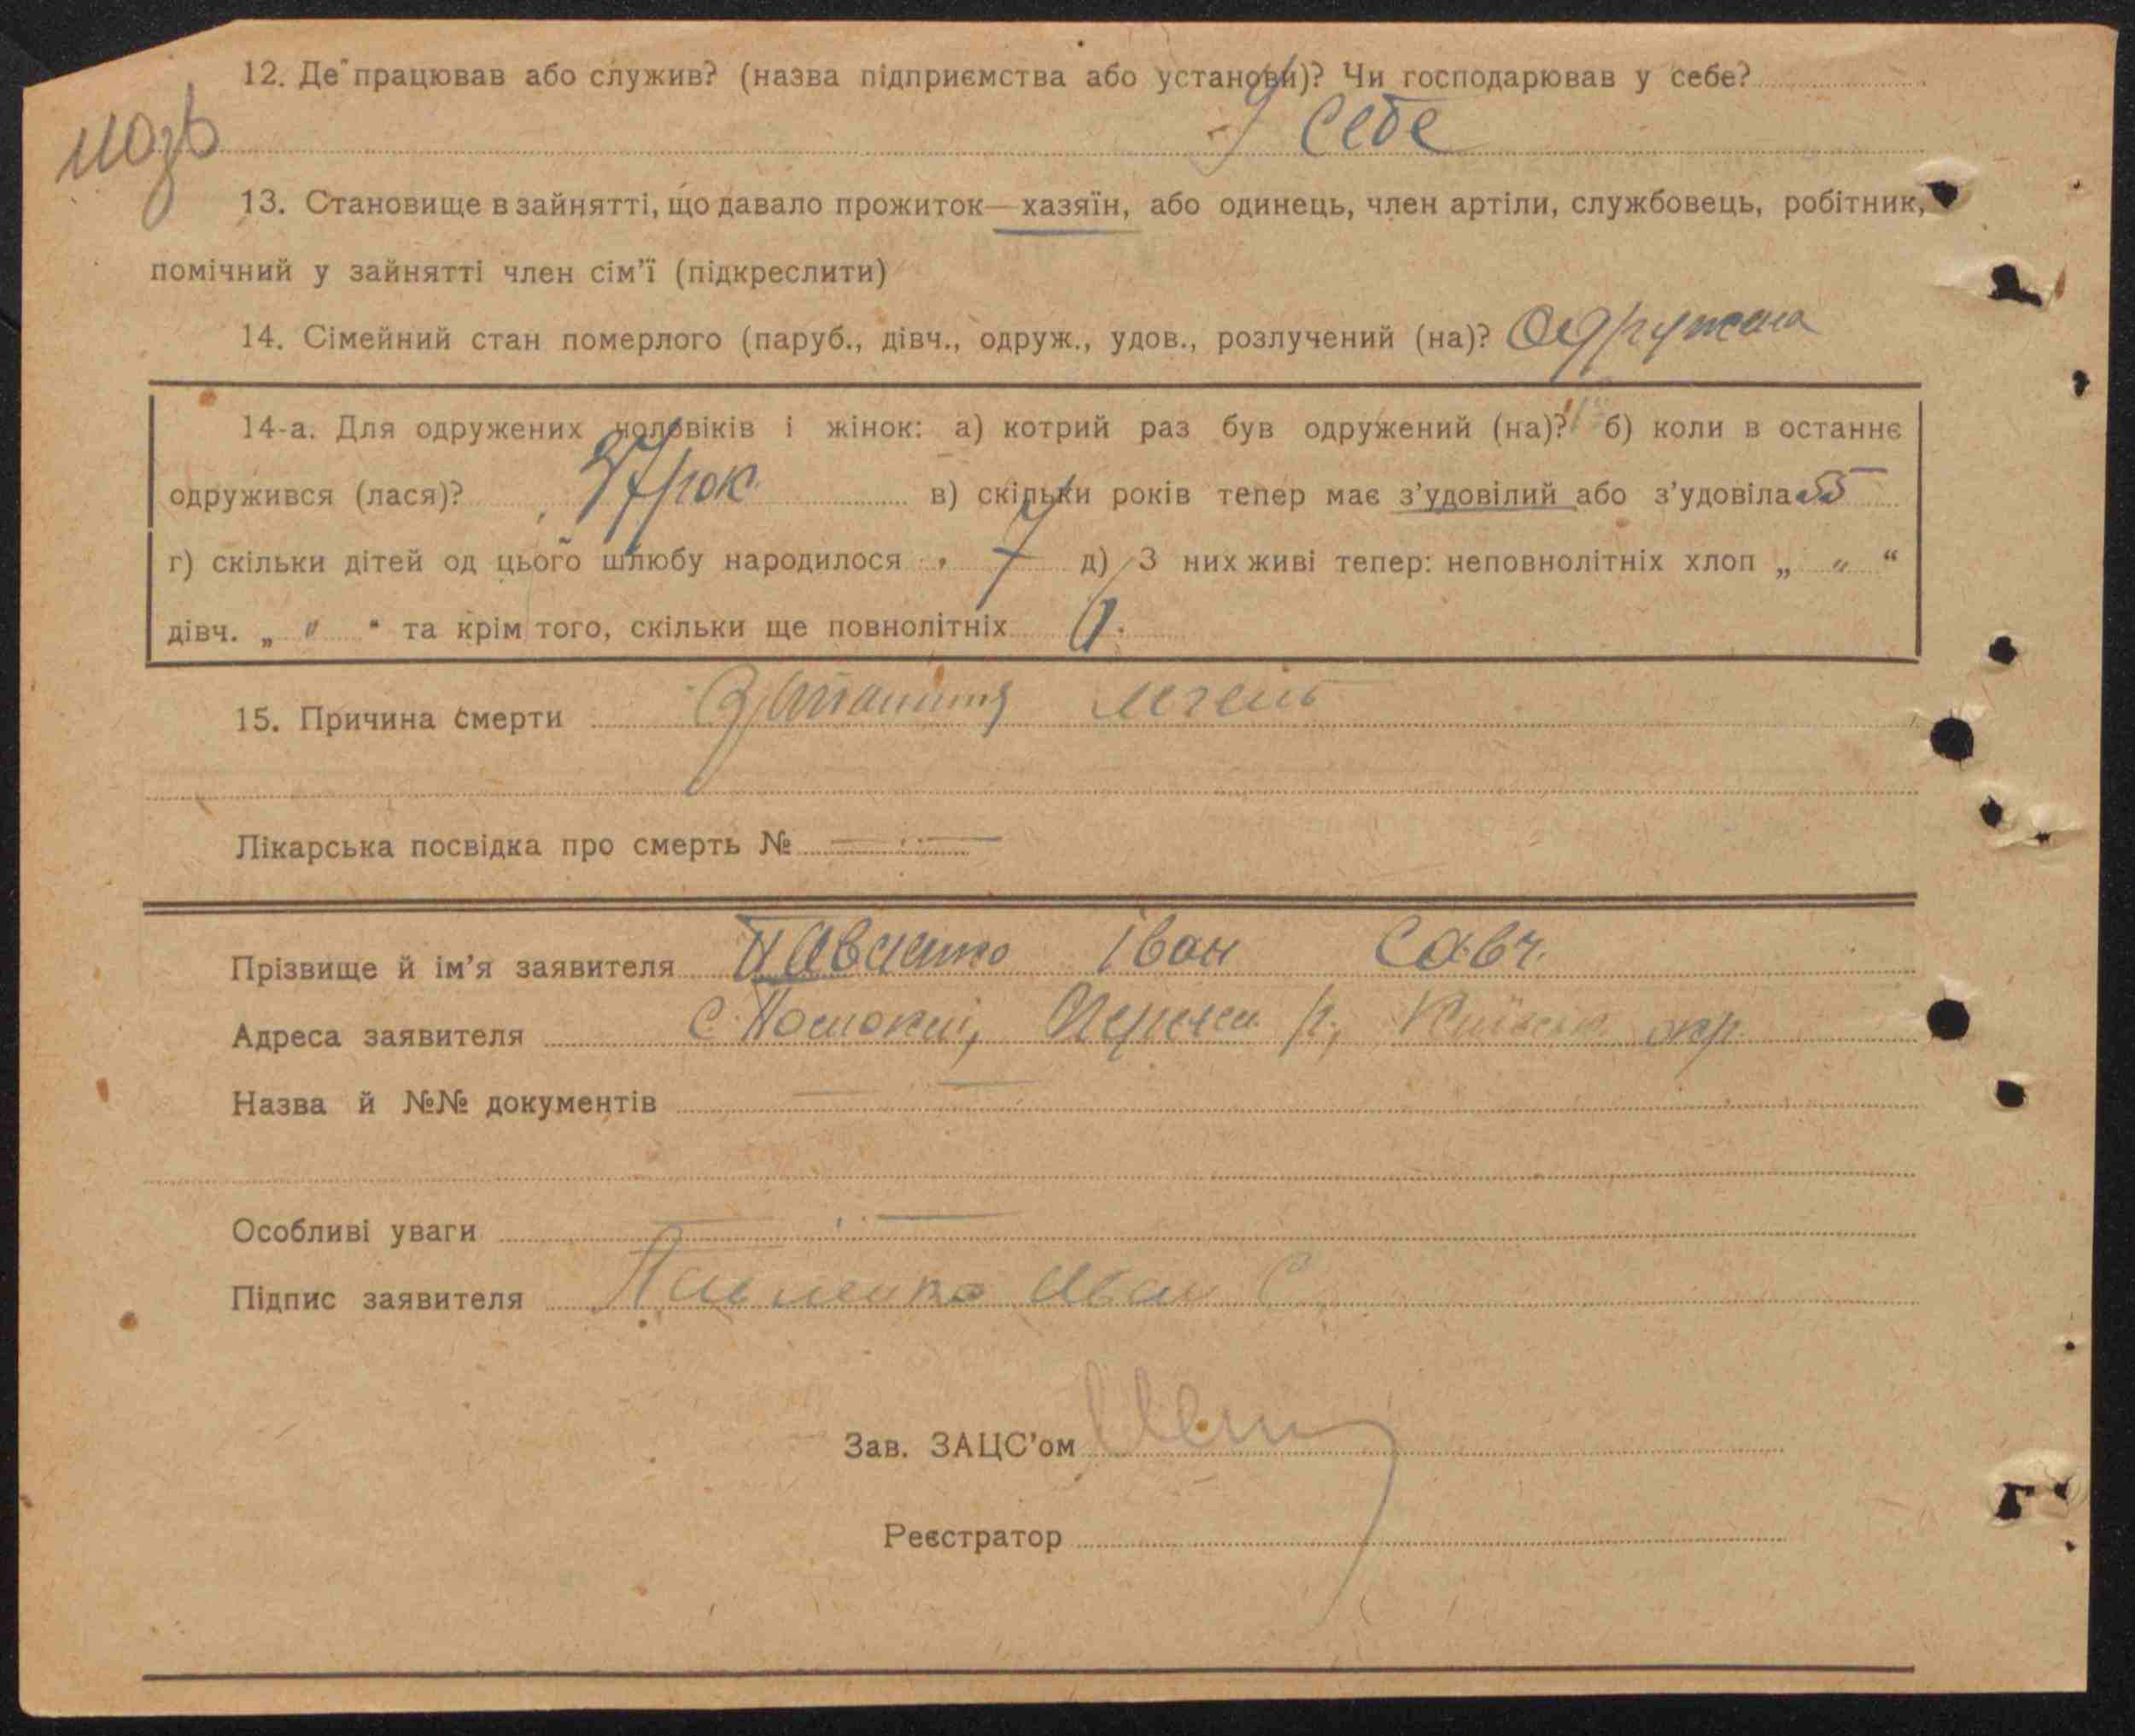 12. Де працював або служив? (назва підприємства або установи)? Чи господарював у себе?
У себе
13. Становище в зайнятті, що давало прожиток—хазяїн, або одинець, член артіли, службовець, робітник,
помічний у зайнятті член сім'ї (підкреслити)
14. Сімейний стан померлого (паруб., дівч., одруж., удов., розлучений (на)? Одружена
14-а. Для одружених чоловіків і жінок: а) котрий раз був одружений (на)? б) коли в останнє
одружився (лася)? рок в) скільки років тепер має з'удовілий або з'удовіла 55
г) скільки дітей од цього шлюбу народилося 7 д) З них живі тепер: неповнолітніх хлоп „ " “
дівч. „ " “ та крім того, скільки ще повнолітніх
15. Причина смерти легень
Лікарська посвідка про смерть № —
Прізвище й ім'я заявителя Павленко Іван Савч.
Адреса заявителя с. р., Київськ. окр.
Назва й №№ документів —
Особливі уваги —
Підпис заявителя Павленко Иван С
Зав. ЗАЦС'ом
Реєстратор